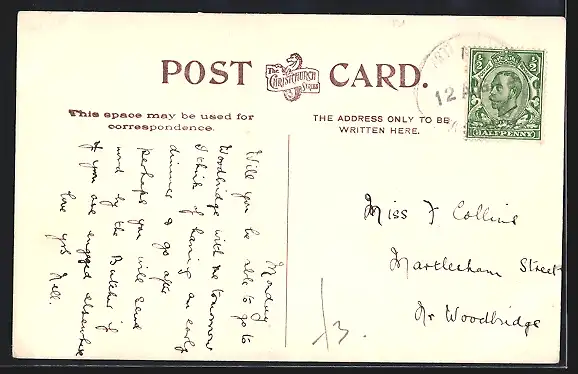 POST CARD.
The
CHRISTCHURCH
SERIES
This space may be used for
correspondence.
THE ADDRESS ONLY TO BE
WRITTEN HERE.
12 AU
½ ½
HALFPENNY
Monday
Will you be able to go to
Woodbridge with me tomorrow
I think of having an early
dinner & go after
perhaps you will send
word by the Butcher if
if you are engaged elsewhere
love yrs Nell.
Miss F Collins
Martlesham Street
Nr Woodbridge
/3.